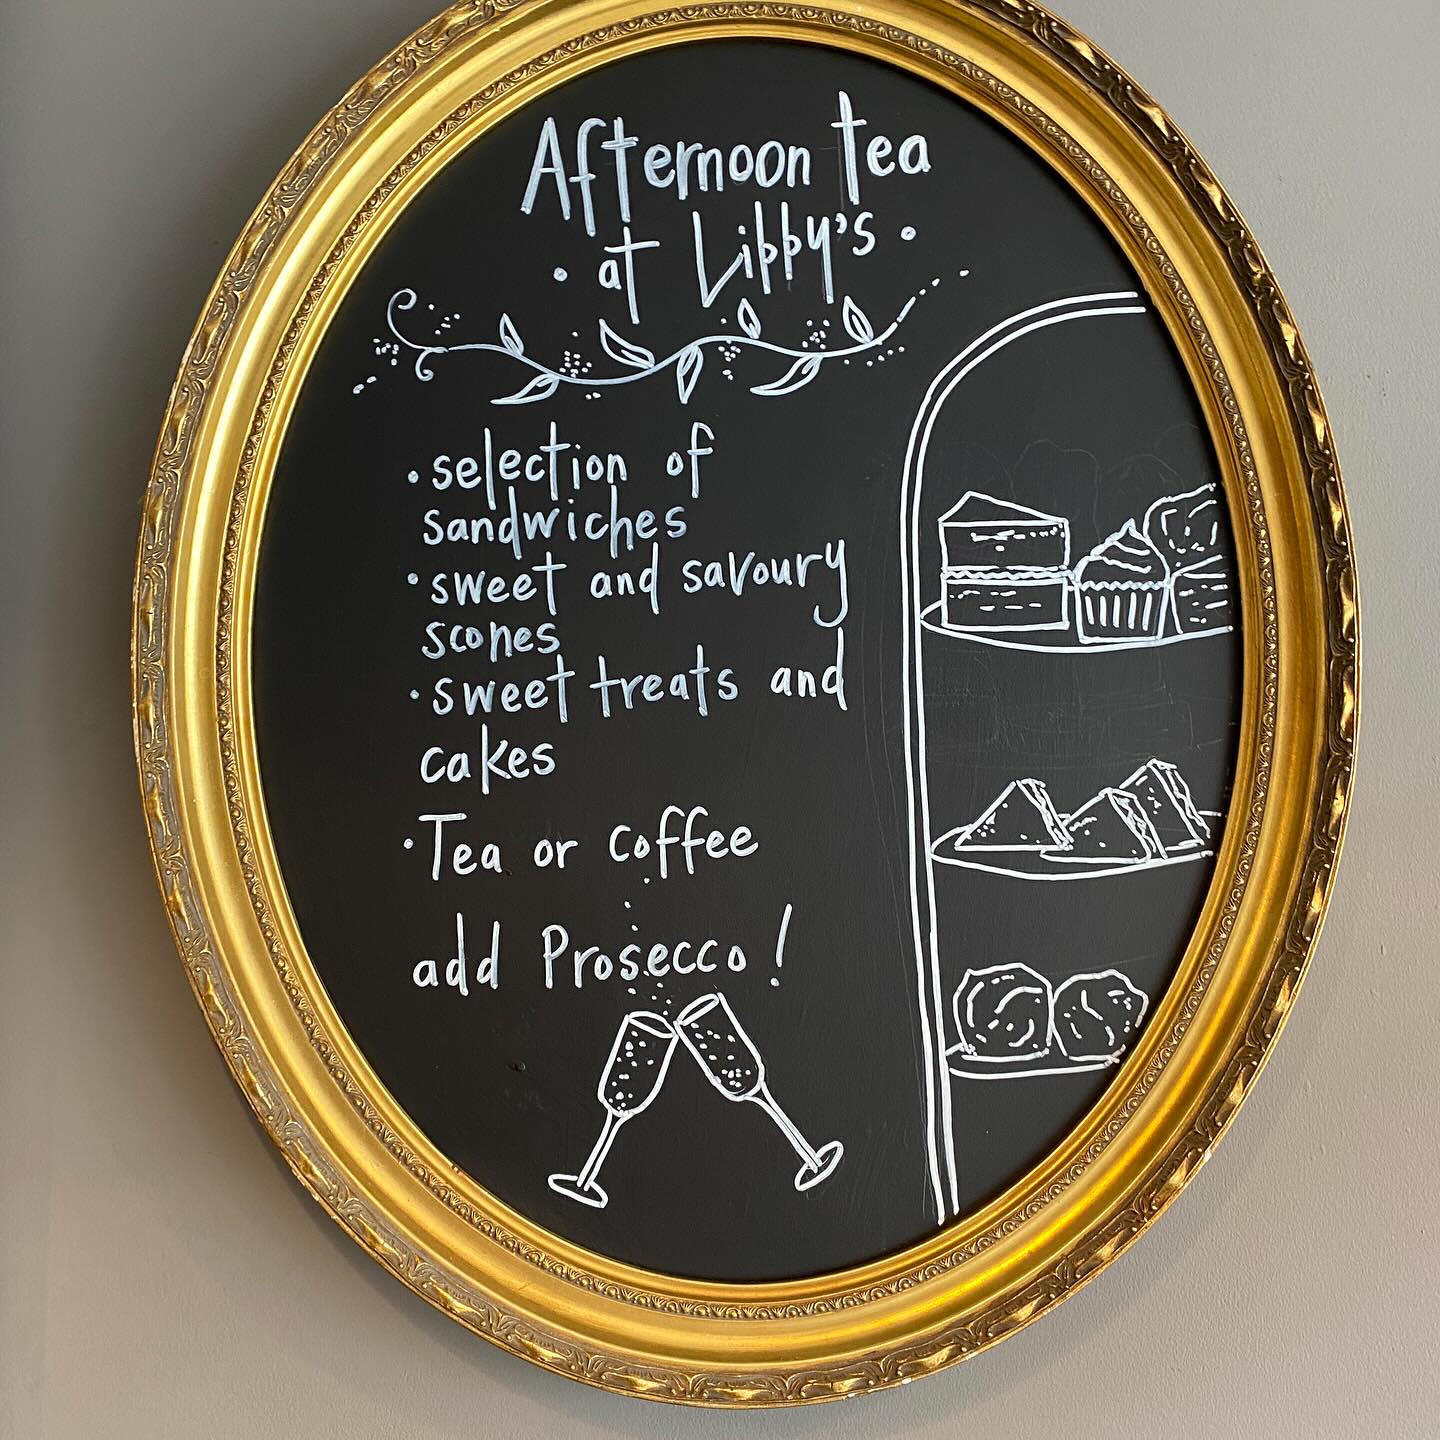 Afternoon tea
• at Libby's •
• selection of
sandwiches
• sweet and savoury
scones
• sweet treats and
cakes
• Tea or coffee
add Prosecco!